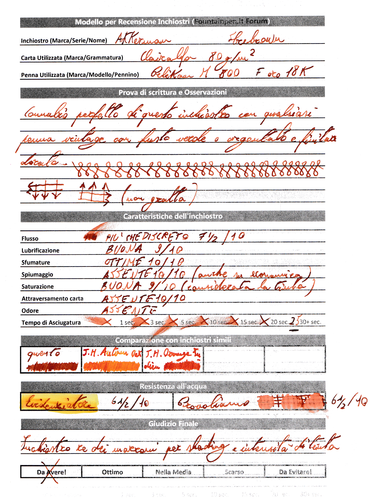 Modello per Recensione Inchiostri (Fountainpen.it Forum)
Inchiostro (Marca/Serie/Nome) AKKerman
Carta Utilizzata (Marca/Grammatura) Clairalfa 80 g/m²
Penna Utilizzata (Marca/Modello/Pennino) Pelikan M 800 F oro 18K
Prova di scrittura e Osservazioni
perfetto di questo inchiostro con qualsiasi
penna vintage con fusto verde o
dorata
(non gratta)
Caratteristiche dell'inchiostro
Flusso PIU' CHE DISCRETO 7 1/2 / 10
Lubrificazione BUONA 9/10
Sfumature OTTIME 10/10
Spiumaggio ASSENTE 10/10 (anche su )
Saturazione BUONA 9/10 (considerata la tinta)
Attraversamento carta ASSENTE 10/10
Odore ASSENTE
Tempo di Asciugatura 1 sec. 3 sec. 5 sec. 10 sec. 15 sec. 20 sec. 25 30+ sec.
Comparazione con inchiostri simili
questo J.H. Autumn Oak J.H. Orange
Resistenza all'acqua
Evidenziatore 6 1/2 /10 6 1/2 /10
Giudizio Finale
Inchiostro re dei marroni per shading e intensità di tinta
Da Avere! Ottimo Nella Media Scarso Da Evitare!